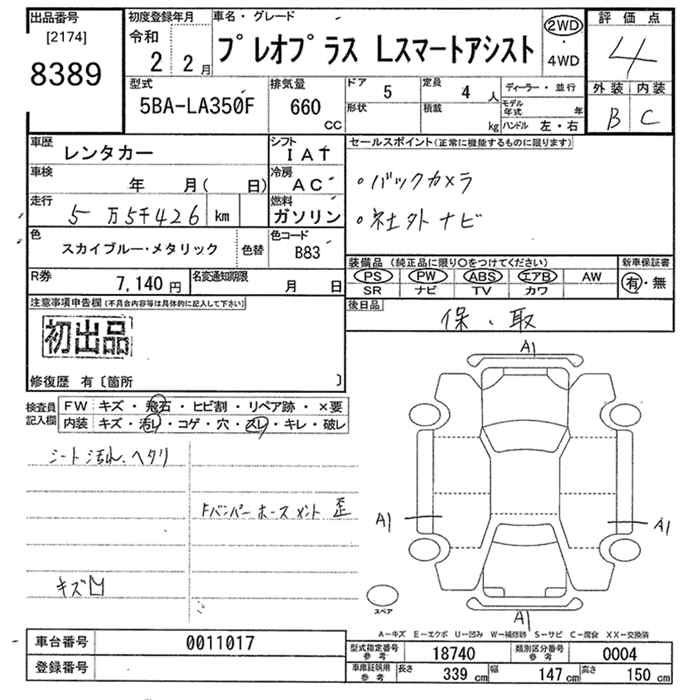 出品番号
[2174]
8389
初度登録年月
令和
2 2月
車名・グレード
プレオプラス Lスマートアシスト
2WD
・
4WD
評価点
4
外装 内装
B C
型式
5BA-LA350F
排気量
660
CC
ドア 5
定員 4 人
形状
積載 kg
ディーラー・並行
モデル年式 年
ハンドル 左・右
車歴 レンタカー
シフト IAT
車検 年 月( 日)
冷房 AC
走行 5万5千426 km
燃料 ガソリン
色 スカイブルー・メタリック
色替
色コード B83
R券 7,140 円
名変通知期限 月 日
セールスポイント(正常に機能するものに限ります)
・バックカメラ
・社外ナビ
装備品 (純正品に限り○をつけてください)
新車保証書
PS PW ABS エアB AW
SR ナビ TV カワ
有・無
後日品
保・取
注意事項申告欄(不具合内容等は具体的に記入して下さい)
初出品
修復歴 有〔箇所 〕
検査員記入欄
FW キズ・飛石・ヒビ割・リペア跡・×要
内装 キズ・汚レ・コゲ・穴・スレ・キレ・破レ
シート汚れ、ヘタリ
Fバンパーホースメント歪
キズ凹
A1
A1
A1
A1
スペア
A－キズ E－エクボ U－凹み W－補修跡 S－サビ C－腐食 XX－交換済
車台番号 0011017
登録番号
型式指定番号参考 18740
類別区分番号参考 0004
車庫証明用参考 長さ 339 cm 幅 147 cm 高さ 150 cm